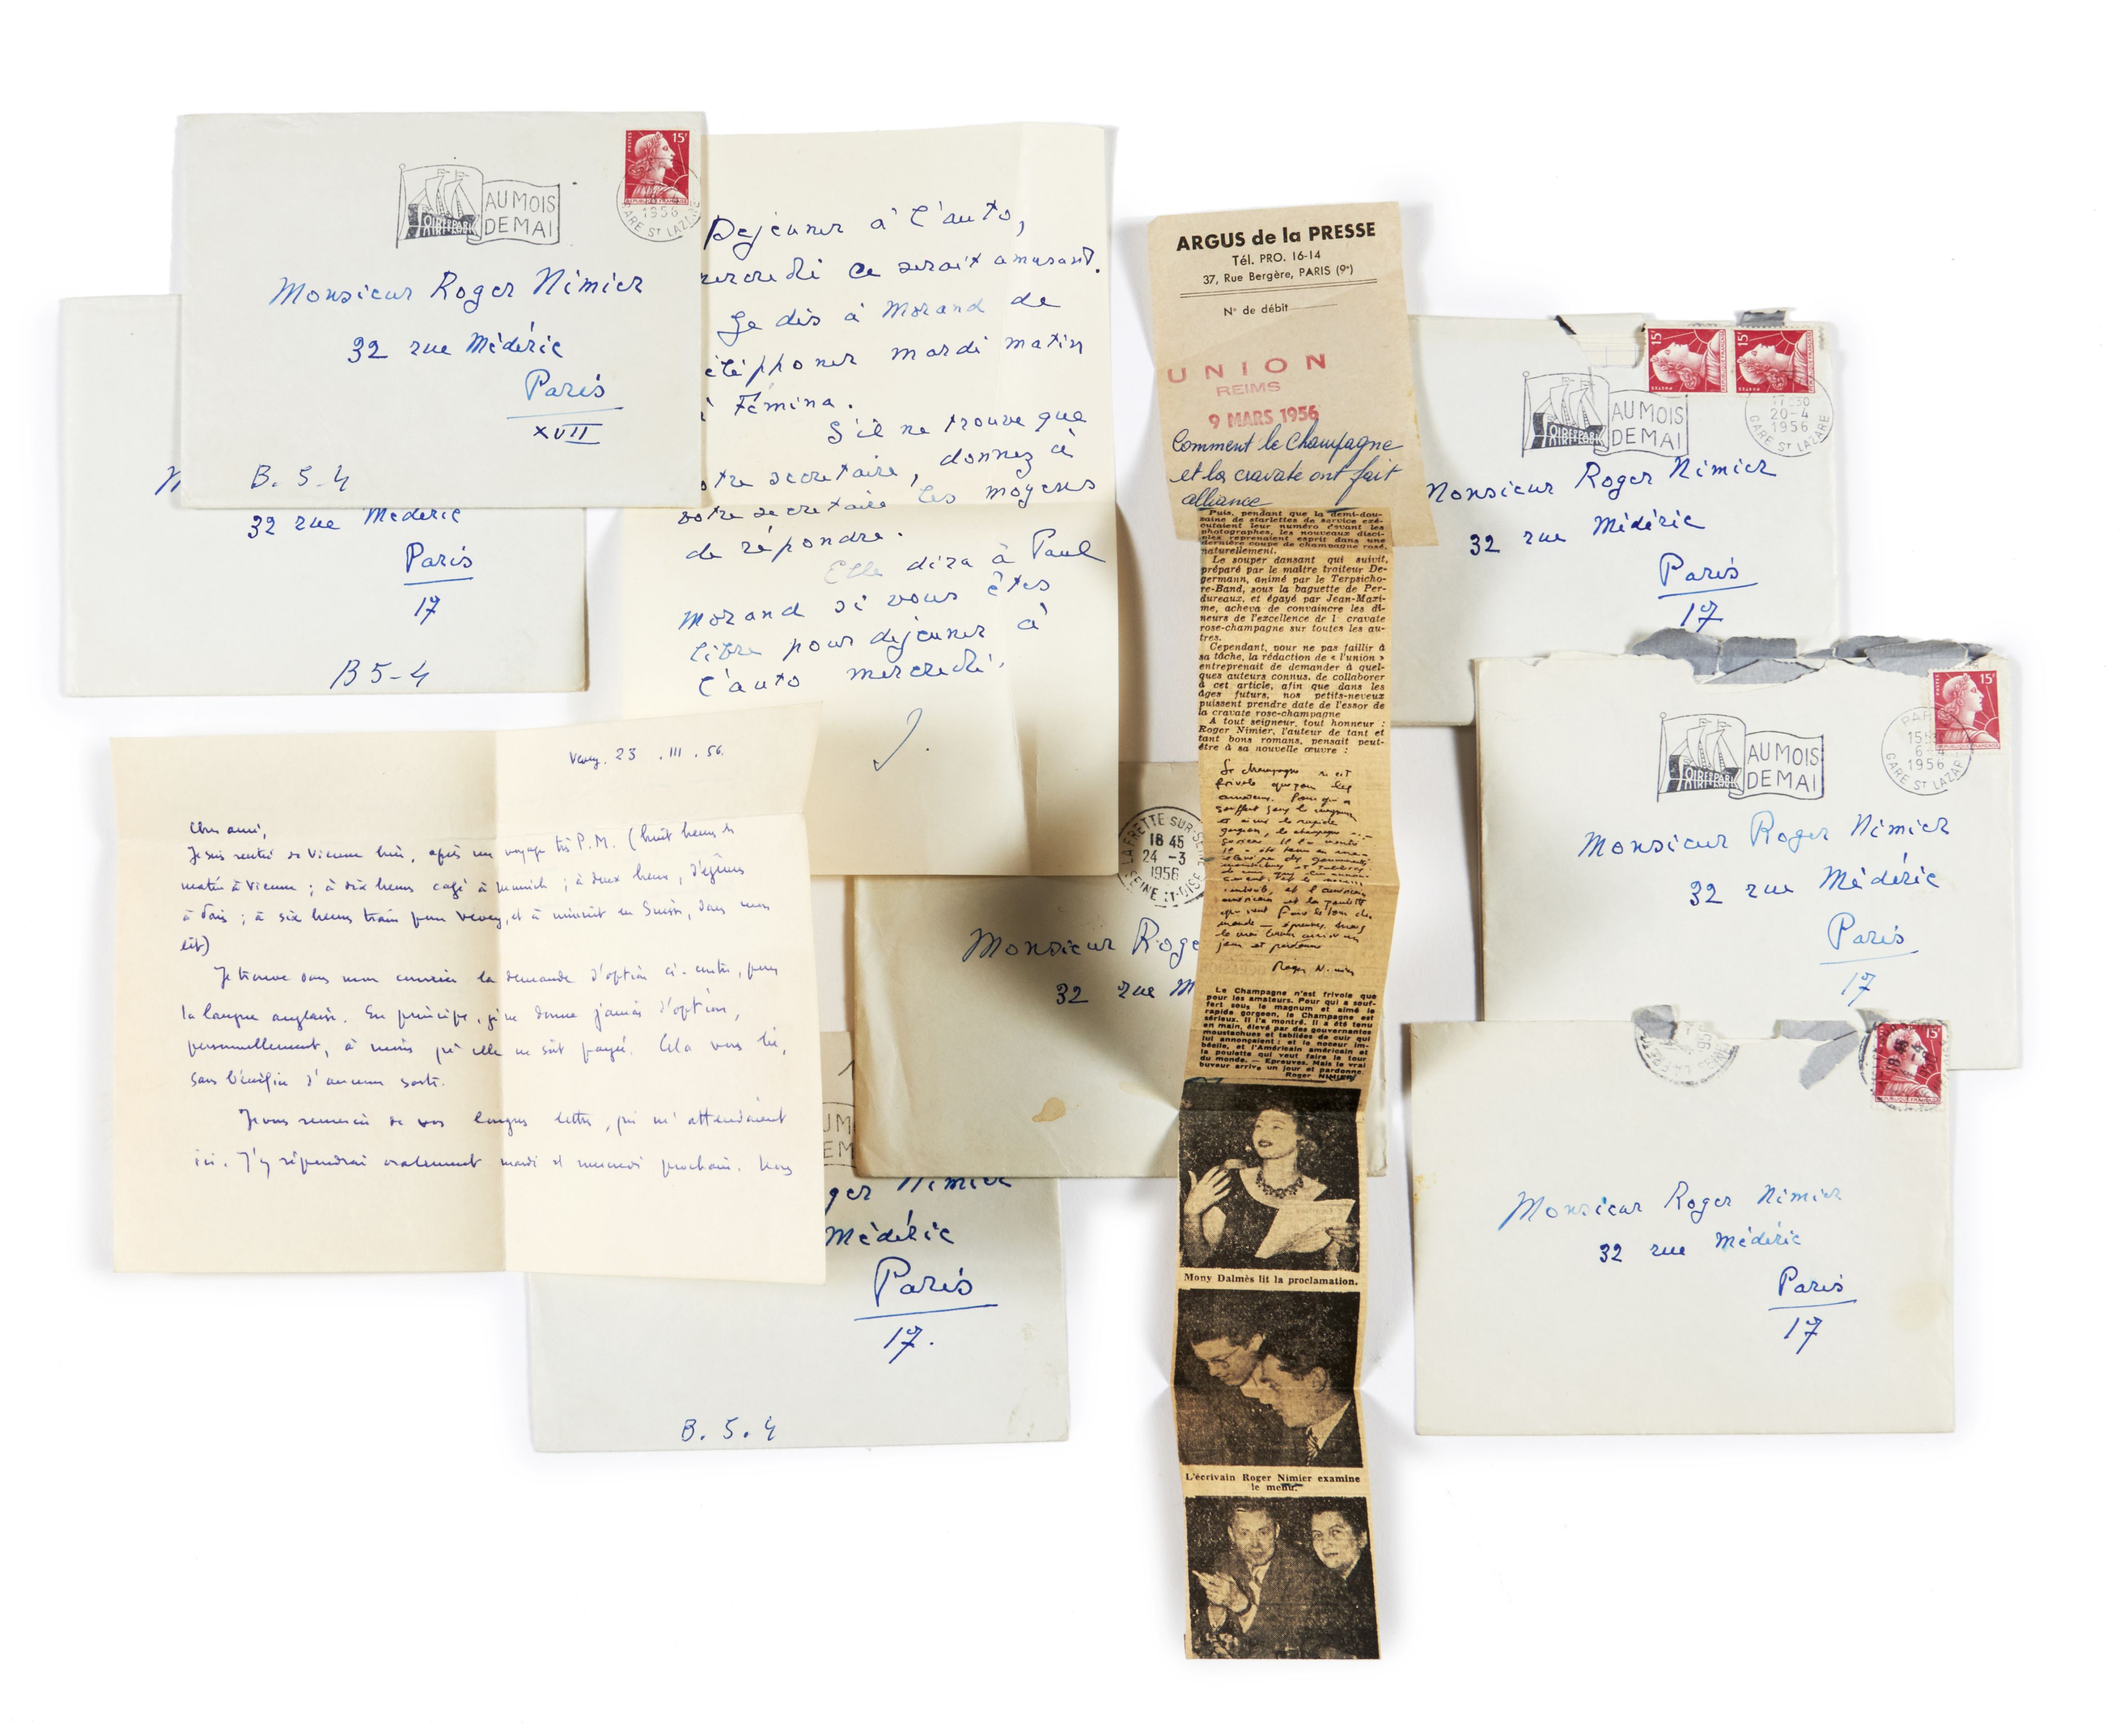 15F
1956
GARE ST LAZARE
AU MOIS
DE MAI
Monsieur Roger Nimier
32 rue Médéric
Paris
XVII
B. 5-4
32 rue Médéric
Paris
17
B5-4
Dejeuner à l'auto,
mercredi ce serait amusant.
Je dis à Morand de
téléphoner mardi matin
à Fémina.
S'il ne trouve que
votre secretaire, donnez à
votre secretaire les moyens
de répondre.
Elle dira à Paul
Morand si vous êtes
libre pour dejeuner à
l'auto mercredi.
J.
Vevey. 23 .III. 56.
Cher ami,
Je suis rentré de Vienne hier, après un voyage très P.M. (huit heures du
matin à Vienne ; à dix heures café à Munich ; à deux heures, déjeuner
à Paris ; à six heures train pour Vevey, et à minuit en Suisse, dans mon
lit)
Je trouve dans mon courrier la demande d'option ci-incluse, pour
la langue anglaise. En principe, je ne donne jamais d'option,
personnellement, à moins qu'elle ne soit payée. Cela vous lie,
sans bénéfice d'aucune sorte.
Je vous remercie de vos longues lettres, qui m'attendaient
ici. J'y répondrai oralement mardi et mercredi prochain.
ger Nimier
Médéric
Paris
17.
B. 5. 4
LA FRETTE SUR-SEINE
18 45
24 -3
1956
SEINE-ET-OISE
Monsieur Roge
32 rue M
ARGUS de la PRESSE
Tél. PRO. 16-14
37, Rue Bergère, PARIS (9e)
N° de débit
UNION
REIMS
9 MARS 1956
Comment le Champagne
et la cravate ont fait
alliance
Puis, pendant que la demi-dou-
zaine de starlettes de service exé-
cutaient leur numéro devant les
photographes, les nouveaux disci-
ples reprenaient esprit dans une
dernière coupe de champagne rosé,
naturellement.
Le souper dansant qui suivit,
préparé par le maître traiteur De-
germann, animé par le Terpsicho-
re-Band, sous la baguette de Per-
dureaux, et égayé par Jean-Maxi-
me, acheva de convaincre les dî-
neurs de l'excellence de l' cravate
rose-champagne sur toutes les au-
tres.
Cependant, pour ne pas faillir à
sa tâche, la rédaction de « l'union »
entreprenait de demander à quel-
ques auteurs connus, de collaborer
à cet article, afin que dans les
âges futurs, nos petits-neveux
puissent prendre date de l'essor de
la cravate rose-champagne
A tout seigneur, tout honneur :
Roger Nimier, l'auteur de tant et
tant bons romans, pensait peut-
être à sa nouvelle œuvre :
Le champagne n'est
frivole que pour les
amateurs. Pour qui a
souffert sous le magnum
et aimé le rapide
gorgeon, le champagne
Roger Nimier
Le Champagne n'est frivole que
pour les amateurs. Pour qui a souf-
fert sous le magnum et aimé le
rapide gorgeon, le Champagne est
sérieux. Il l'a montré. Il a été tenu
en main, élevé par des gouvernantes
moustachues et tabliées de cuir qui
lui annonçaient : et le noceur im-
bécile, et l'Américain américain et
la poulette qui veut faire le tour
du monde. — Epreuves. Mais le vrai
buveur arrive un jour et pardonne.
Roger NIMIER
Mony Dalmès lit la proclamation.
L'écrivain Roger Nimier examine
le menu.
15F
15F
17 30
20-4
1956
GARE ST LAZARE
AU MOIS
DE MAI
Monsieur Roger Nimier
32 rue Médéric
Paris
17
15F
1956
GARE ST LAZARE
AU MOIS
DE MAI
Monsieur Roger Nimier
32 rue Médéric
Paris
17
15F
Monsieur Roger Nimier
32 rue Médéric
Paris
17